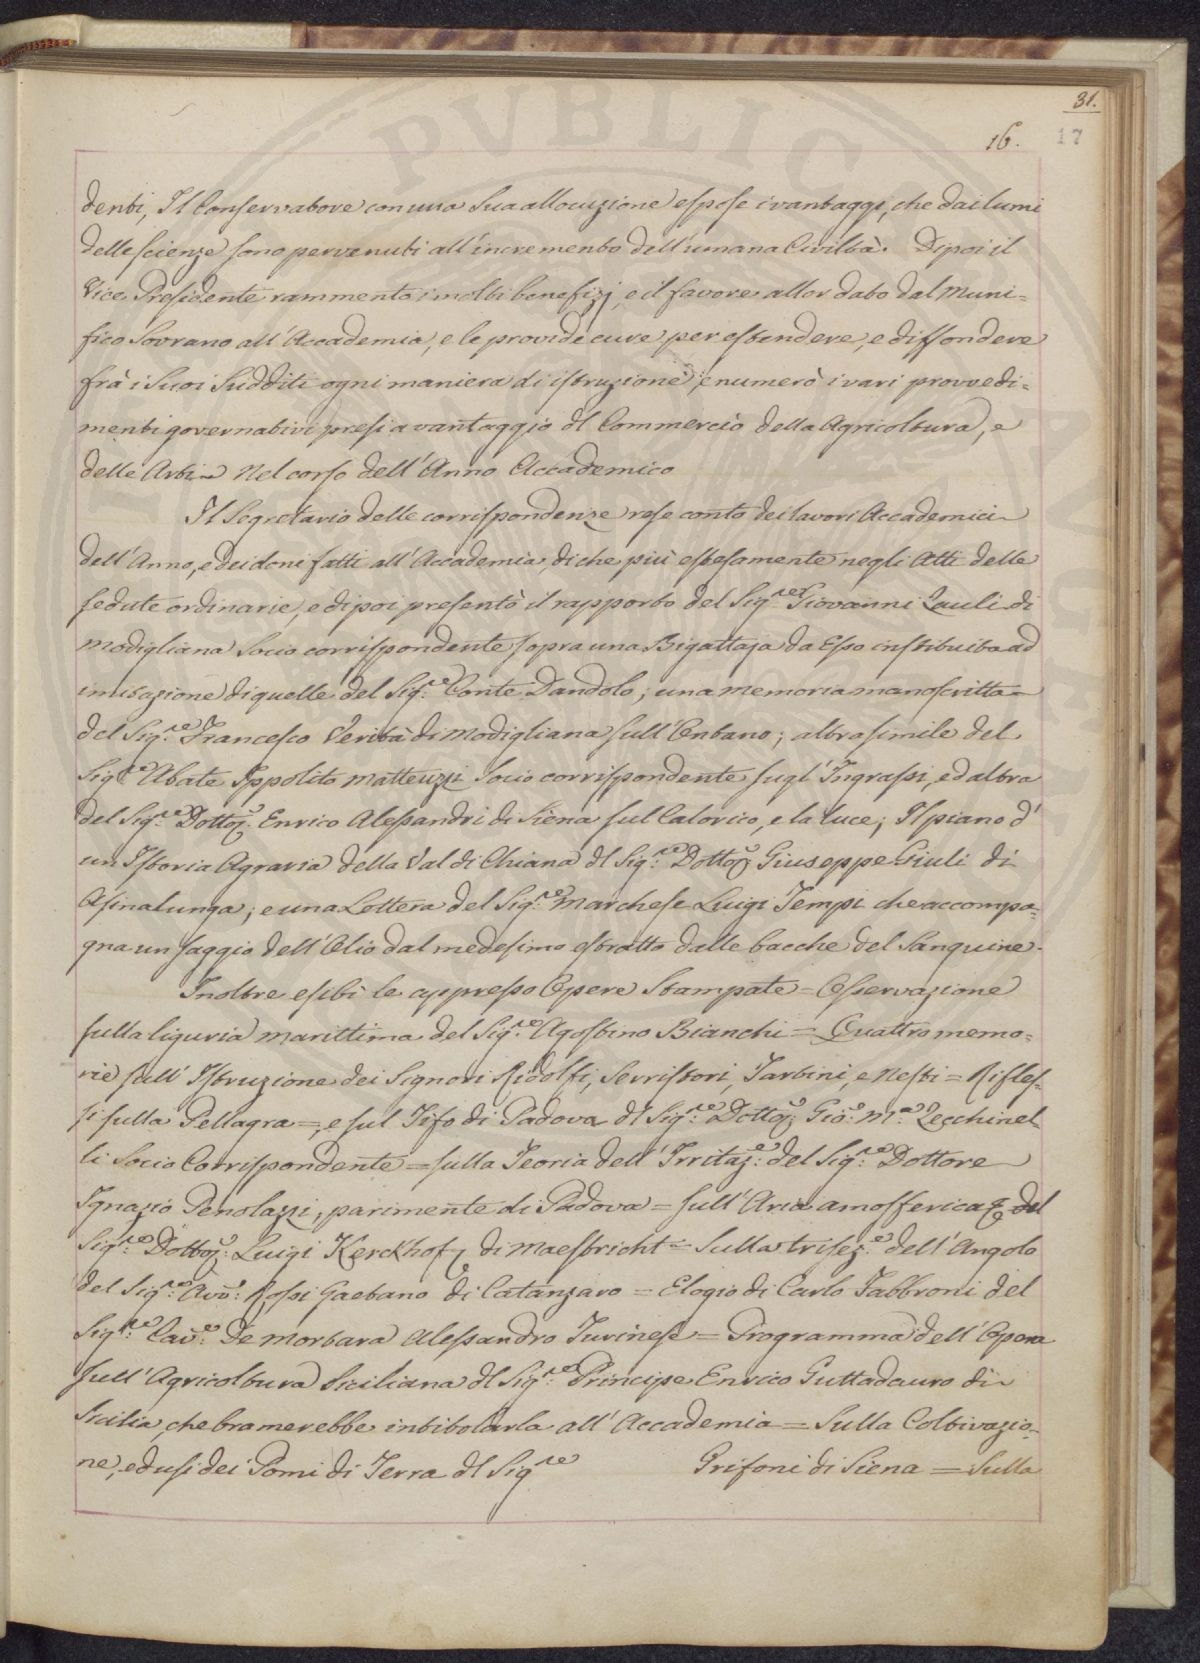 31.
16. 17
denti, Il Conservatore con una Sua allocuzione espose i vantaggi, che dai lumi
delle scienze sono pervenuti all'incremento dell'umana Civiltà. Dipoi il
Vice Presidente rammentò i molti benefizj, e il favore allor dato dal Muni=
fico Sovrano all'Accademia, e le provide cure per estendere, e diffondere
frà i Suoi Sudditi ogni maniera di istruzione; enumerò i vari provvedi=
menti governativi presi a vantaggio dl Commercio della Agricoltura, e
delle Arti Nel corso dell'Anno Accademico
Il Segretario delle corrispondenze rese conto dei lavori Accademici
dell'Anno, e dei doni fatti all'Accademia, di che più estesamente negli Atti delle
sedute ordinarie, e dipoi presentò il rapporto del Sig.re Giovanni Zauli di
Modigliana Socio corrispondente sopra una Bigattaja da Esso instituita ad
imitazione di quelle del Sig.re Conte Dandolo; una memoria manoscritta
del Sig.re Francesco Verità di Modigliana sull'Ontano; altra simile del
Sig.re Abate Ippolito Matteuzzi Socio corrispondente sugl'Ingrassi, ed altra
del Sig.re Dottor: Enrico Alessandri di Siena sul Calorico, e la luce; Il piano d'
un Istoria Agraria della Val di Chiana dl Sig.re Dottor: Giuseppe Giuli di
Asinalunga; e una Lettera del Sig.re Marchese Luigi Tempi che accompa=
gna un saggio dell'Olio dal medesimo estratto dalle bacche del Sanguine.
Inoltre esibì le appresso Opere Stampate = Osservazione
sulla liguria marittima del Sig.re Agostino Bianchi = Quattro memo=
rie sull'Istruzione dei Signori Ridolfi, Serristori, Tartini, e Nesti = Rifles=
si sulla Pellagra =, e sul Tifo di Padova dl Sig.re Dottor: Gio: M.a Zecchinel
li Socio Corrispondente = sulla Teoria dell'Irritaz.e: del Sig.re Dottore
Ignazio Penolazzi, parimente di Padova = sull'Aria amosferica del
Sig.re Dottor: Luigi Kerckhof, di Maestricht = Sulla trisez.e: dell'Angolo
del Sig.re Avv: Rossi Gaetano di Catanzaro = Elogio di Carlo Fabbroni del
Sig.re Cav.e: De Mortara Alessandro Turinese = Programma dell'Opera
sull'Agricoltura Siciliana dl Sig.re Principe Enrico Guttadauro di
Sicilia, che bramerebbe intitolarla all'Accademia = Sulla Coltivazio=
ne, ed usi dei Pomi di Terra dl Sig.re Grifoni di Siena = Sulla